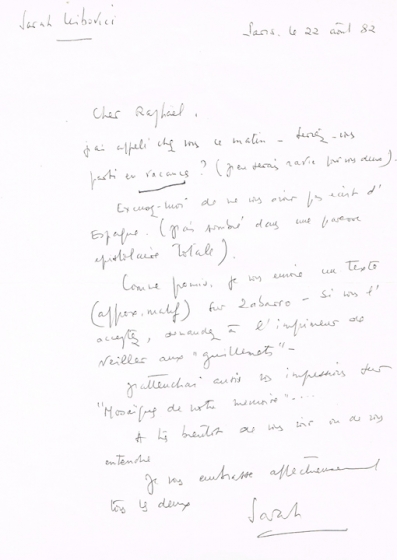 Sarah Leibovici
Paris, le 22 août 82
Cher Raphaël,
j'ai appelé chez vous ce matin – seriez-vous
parti en vacances ? (j'en serais ravie pour vous deux).
Excusez-moi de ne vous avoir pas écrit d'
Espagne. (j'ai sombré dans une paresse
épistolaire totale).
Comme promis, je vous envoie un texte
(approximatif) sur – Si vous l'
acceptez, demandez à l'imprimeur de
veiller aux "guillemets" –
J'attends aussi vos impressions sur
"Mosaïques de notre mémoire"...
A très bientôt de vous voir ou de vous
entendre
Je vous embrasse affectueusement
tous les deux
Sarah